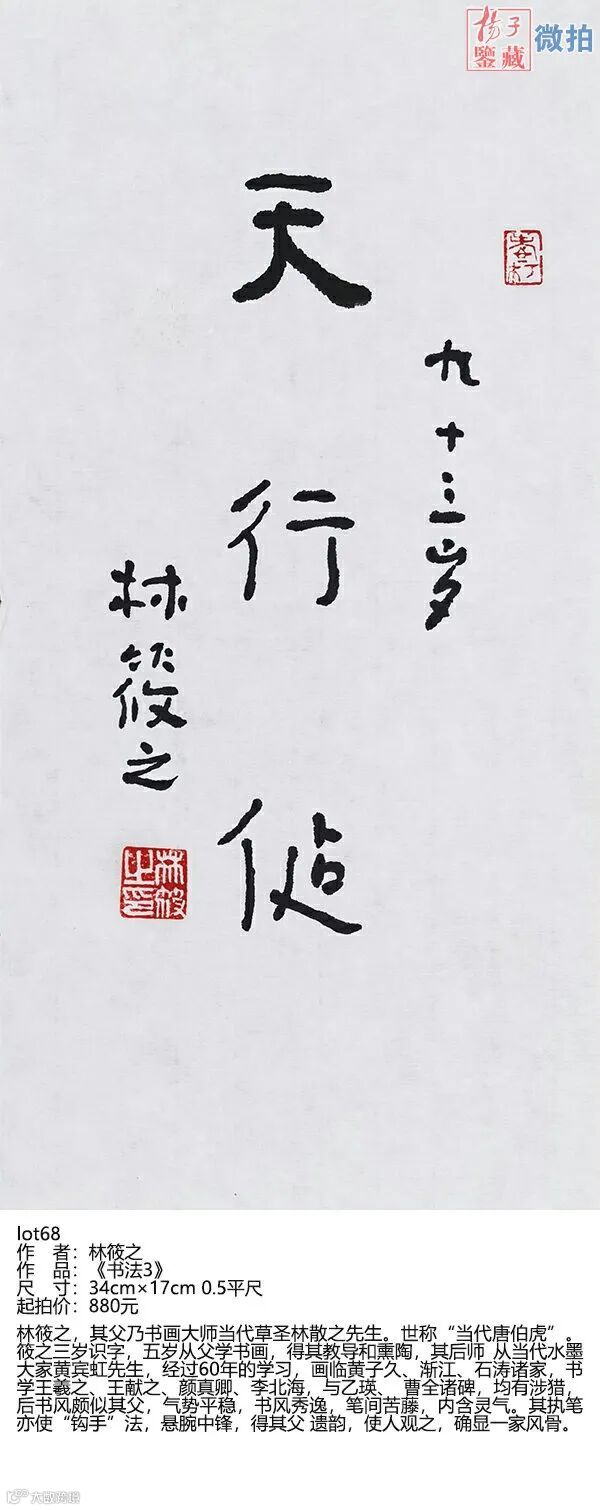 揚子
鑒藏
微拍
九十三岁
天行
林筱之
林筱之印
lot68
作 者：林筱之
作 品：《书法3》
尺 寸：34cm×17cm 0.5平尺
起拍价：880元
林筱之，其父乃书画大师当代草圣林散之先生。世称“当代唐伯虎”。
筱之三岁识字，五岁从父学书画，得其教导和熏陶，其后师 从当代水墨
大家黄宾虹先生，经过60年的学习，画临黄子久、渐江、石涛诸家，书
学王羲之、王献之、颜真卿、李北海，与乙瑛、 曹全诸碑，均有涉猎，
后书风颇似其父，气势平稳，书风秀逸，笔间苦藤，内含灵气。其执笔
亦使“钩手”法，悬腕中锋，得其父 遗韵，使人观之，确显一家风骨。
大数跨境